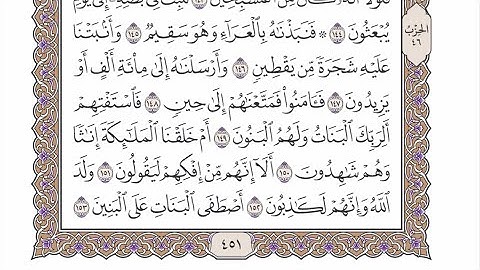 يُبْعَثُونَ ١٤٤ ۞ فَنَبَذْنَٰهُ بِٱلْعَرَآءِ وَهُوَ سَقِيمٌ ١٤٥ وَأَنۢبَتْنَا
عَلَيْهِ شَجَرَةً مِّن يَقْطِينٍ ١٤٦ وَأَرْسَلْنَٰهُ إِلَىٰ مِا۟ئَةِ أَلْفٍ أَوْ
يَزِيدُونَ ١٤٧ فَـَٔامَنُوا۟ فَمَتَّعْنَٰهُمْ إِلَىٰ حِينٍ ١٤٨ فَٱسْتَفْتِهِمْ
أَلِرَبِّكَ ٱلْبَنَاتُ وَلَهُمُ ٱلْبَنُونَ ١٤٩ أَمْ خَلَقْنَا ٱلْمَلَٰٓئِكَةَ إِنَٰثًا
وَهُمْ شَٰهِدُونَ ١٥٠ أَلَآ إِنَّهُم مِّنْ إِفْكِهِمْ لَيَقُولُونَ ١٥١ وَلَدَ
ٱللَّهُ وَإِنَّهُمْ لَكَٰذِبُونَ ١٥٢ أَصْطَفَى ٱلْبَنَاتِ عَلَى ٱلْبَنِينَ ١٥٣
ٱلْحِزْبُ
٤٦
٤٥١